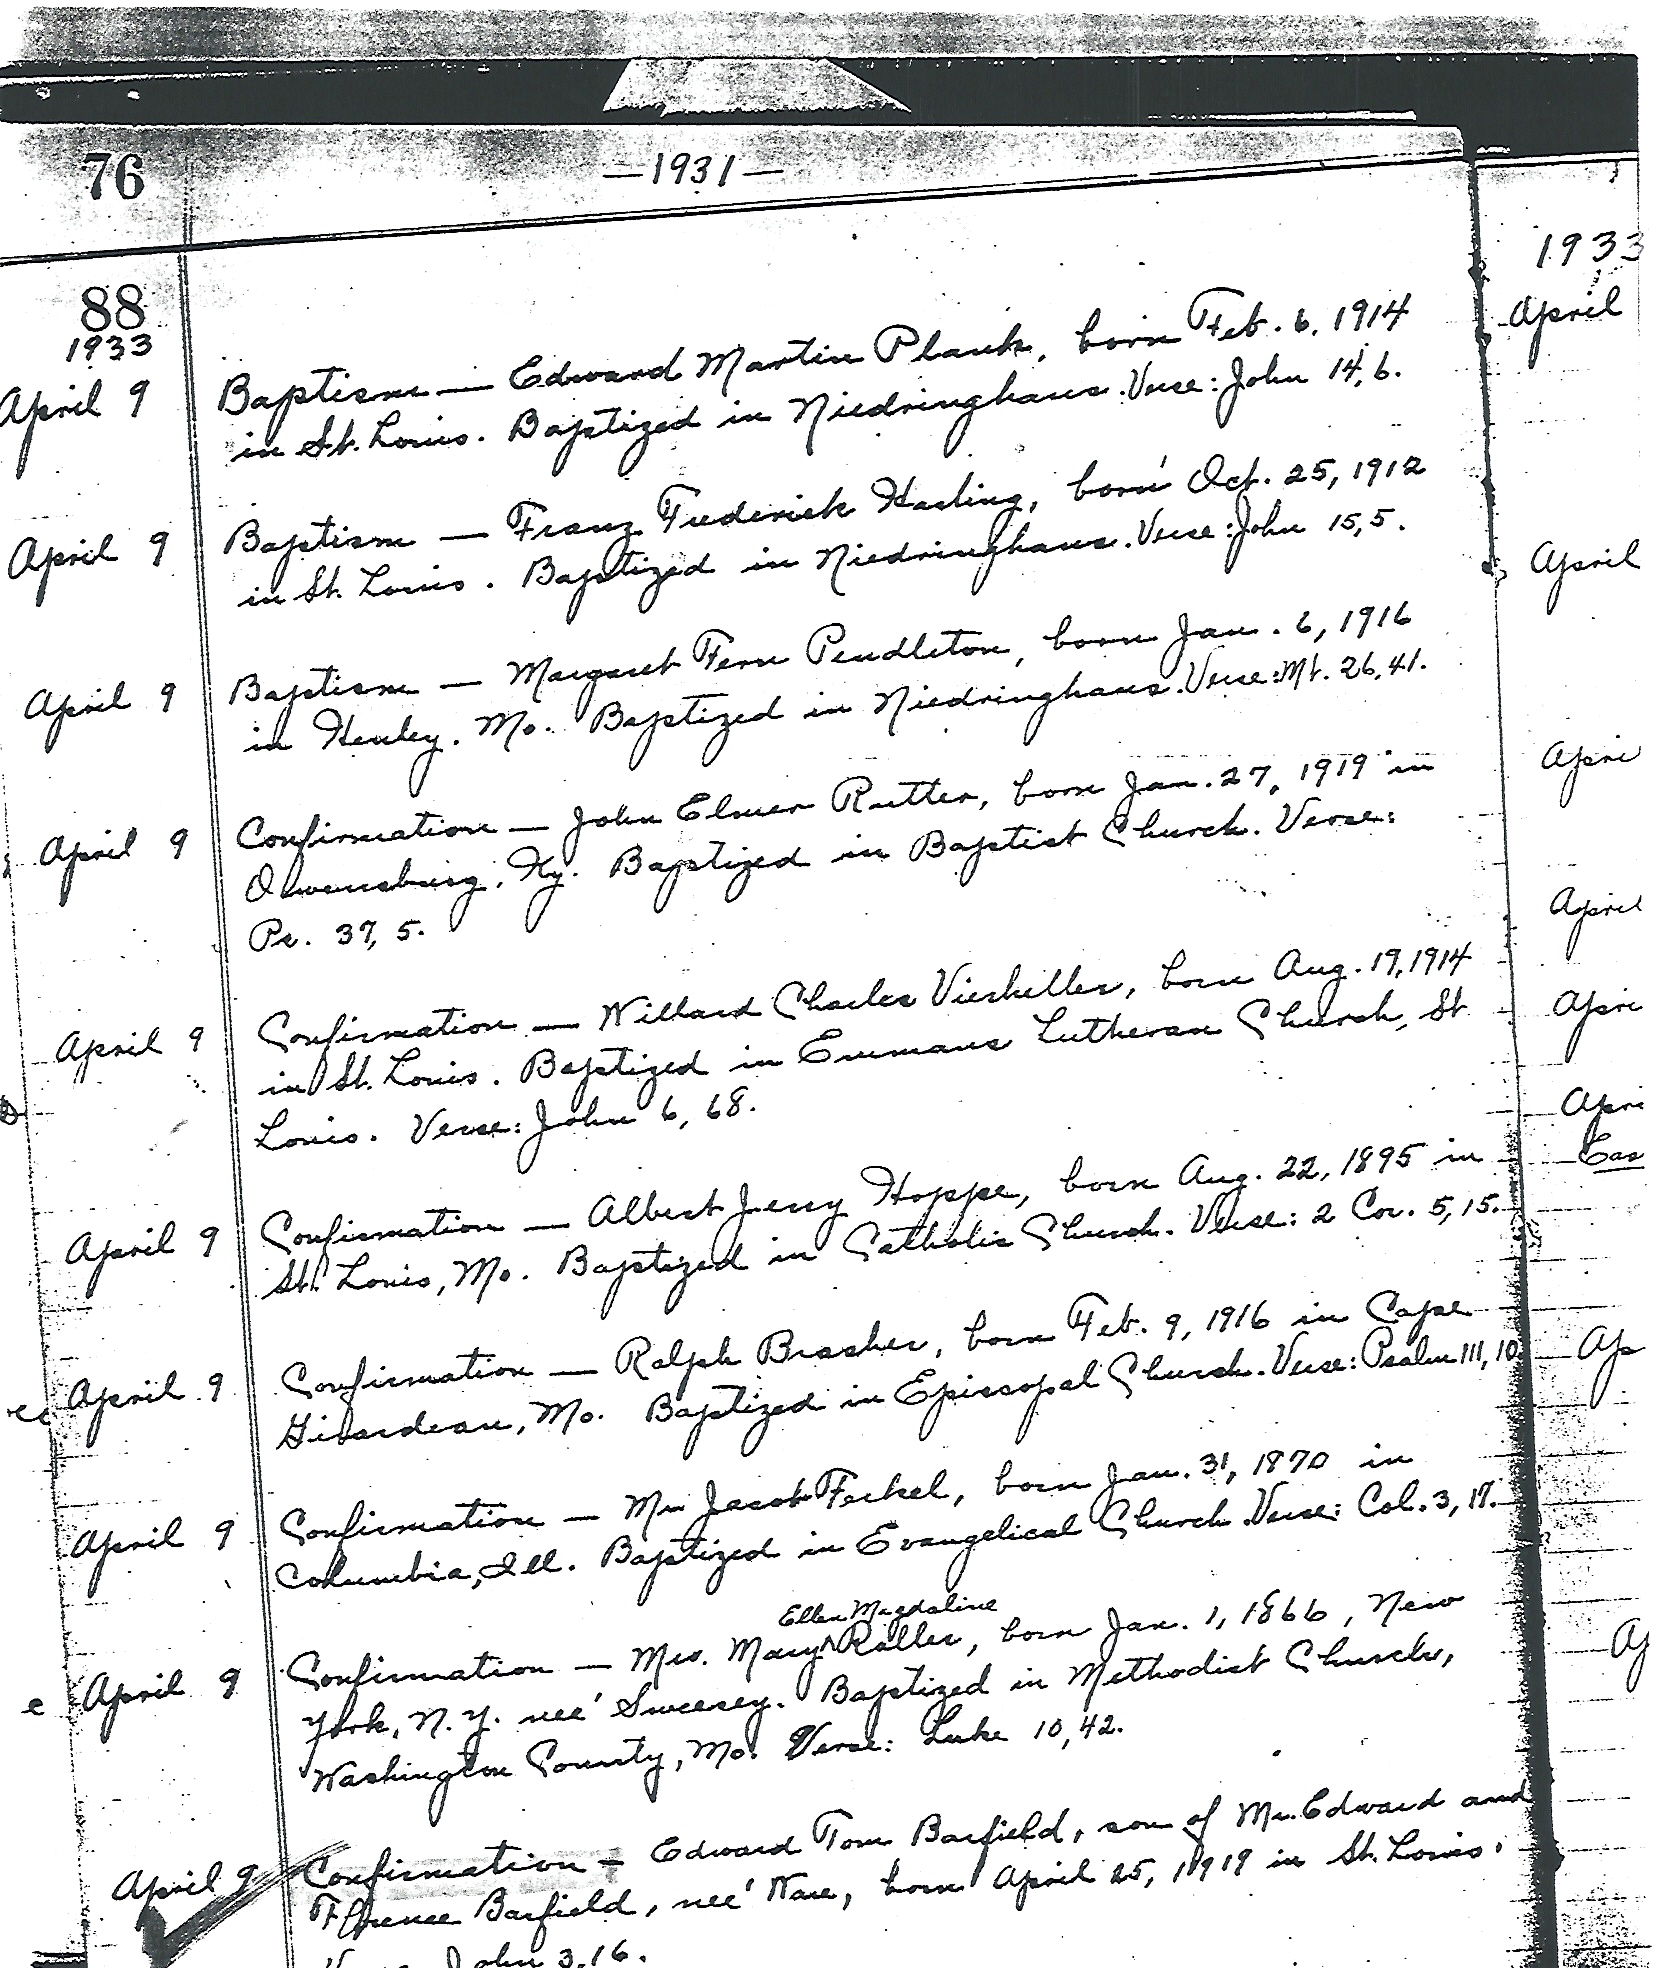 76
—1931—
88
1933
April 9 Baptism — Edward Martin Plank, born Feb. 6, 1914
in St. Louis. Baptized in Niedringhaus. Verse: John 14,6.
April 9 Baptism — Franz Frederick Harling, born Oct. 25, 1912
in St. Louis. Baptized in Niedringhaus. Verse: John 15,5.
April 9 Baptism — Margaret Fern Pendleton, born Jan. 6, 1916
in Henley, Mo. Baptized in Niedringhaus. Verse: Mt. 26,41.
April 9 Confirmation — John Elmer Rutter, born Jan. 27, 1919 in
Owensburg, Ky. Baptized in Baptist Church. Verse:
Ps. 37, 5.
April 9 Confirmation — Willard Charles Vierheller, born Aug. 19, 1914
in St. Louis. Baptized in Emmaus Lutheran Church, St.
Louis. Verse: John 6, 68.
April 9 Confirmation — Albert Jerry Hoppe, born Aug. 22, 1895 in
St. Louis, Mo. Baptized in Catholic Church. Verse: 2 Cor. 5, 15.
April 9 Confirmation — Ralph Brasher, born Feb. 9, 1916 in Cape
Girardeau, Mo. Baptized in Episcopal Church. Verse: Psalm 111, 10
April 9 Confirmation — Mr Jacob Feckel, born Jan. 31, 1870 in
Columbia, Ill. Baptized in Evangelical Church. Verse: Col. 3, 17.
Ellen Magdaline
April 9 Confirmation — Mrs. Mary Roller, born Jan. 1, 1866, New
York, N.Y. neé Sweesey. Baptized in Methodist Church,
Washington County, Mo. Verse: Luke 10,42.
April 9 Confirmation — Edward Tom Barfield, son of Mr. Edward and
Florence Barfield, neé Nave, born April 25, 1919 in St. Louis.
John 3,16.
1933
April
April
Apri
April
Apri
Apri
Eas
Ap
Ap